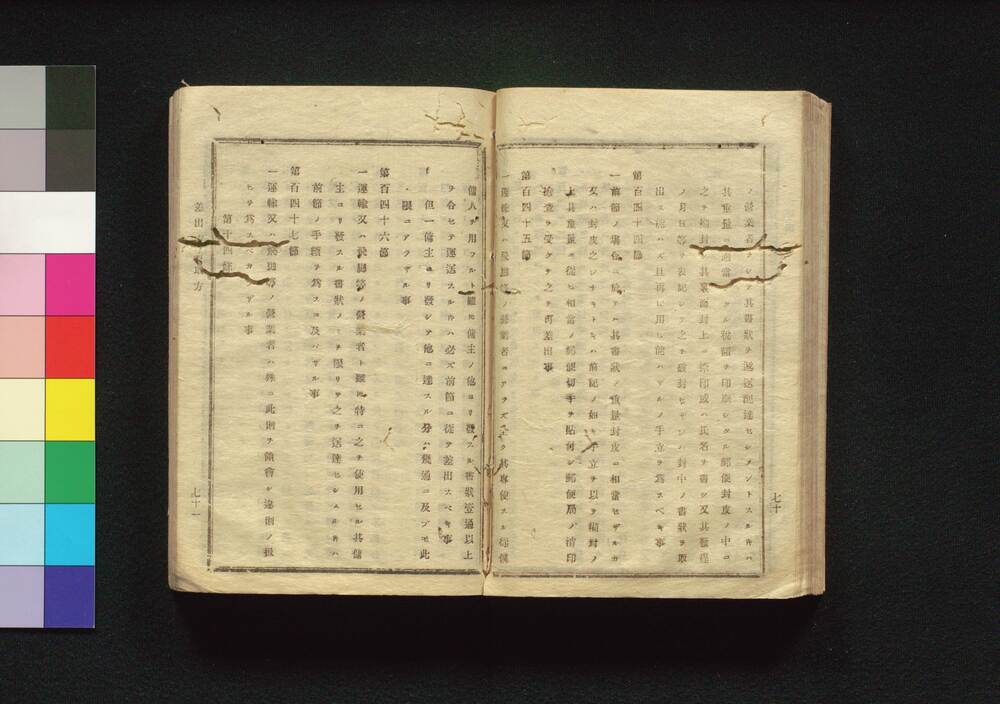 ノ營業者ヲシテ其書狀ヲ遞送配達セシメントスル𪜈ハ
其重量 適當 ル稅額ヲ印刷シタル郵便封皮ノ中ニ
之ヲ 封 其裏面封上ニ 印或ハ氏名ヲ書シ又其發程
ノ月日等ヲ表記シテ之ヲ 封セザレハ封中ノ書狀ヲ取
出ス能ハズ且再ヒ用ヒ能ハザルノ手立ヲ爲スベキ事
第百四十四節
一前節ノ場合ニ於テハ其書狀ノ重量封皮ニ相當セザルカ
又ハ封皮之レナキトキハ前記ノ如キ手立ヲ以テ 封ノ
上其重量ニ 相當ノ郵便切手ヲ貼付シ郵便局ノ消印
檢査ヲ受ケテ之ヲ可差出事
第百四十五節
一運輸又ハ飛脚等ノ營業者ニアラズ 其專使スル 僕
七十
傭人ヲ用フルト雖𪜈傭主ノ他ヨリ發スル書狀壹通以上
ヲ合セテ運送スル𪜈ハ必ズ前節ニ從テ差出スベキ事
但一傭主ヨリ發シテ他ニ達スル分ハ幾通ニ及ブモ此
限ニアラザル事
第百四十六節
一運輸又ハ飛脚等ノ營業者ト雖𪜈特ニ之ヲ使用セル其傭
主ヨリ發スル書狀ノミヲ限リテ之ヲ送達セシムル𪜈ハ
前節ノ手續ヲ爲スニ及バザル事
第百四十七節
一運輸又ハ飛脚等ノ營業者ハ殊ニ此則ヲ領會シ違則ノ扱
ヒヲ爲ス ル事
第十四
差出 方
七十一